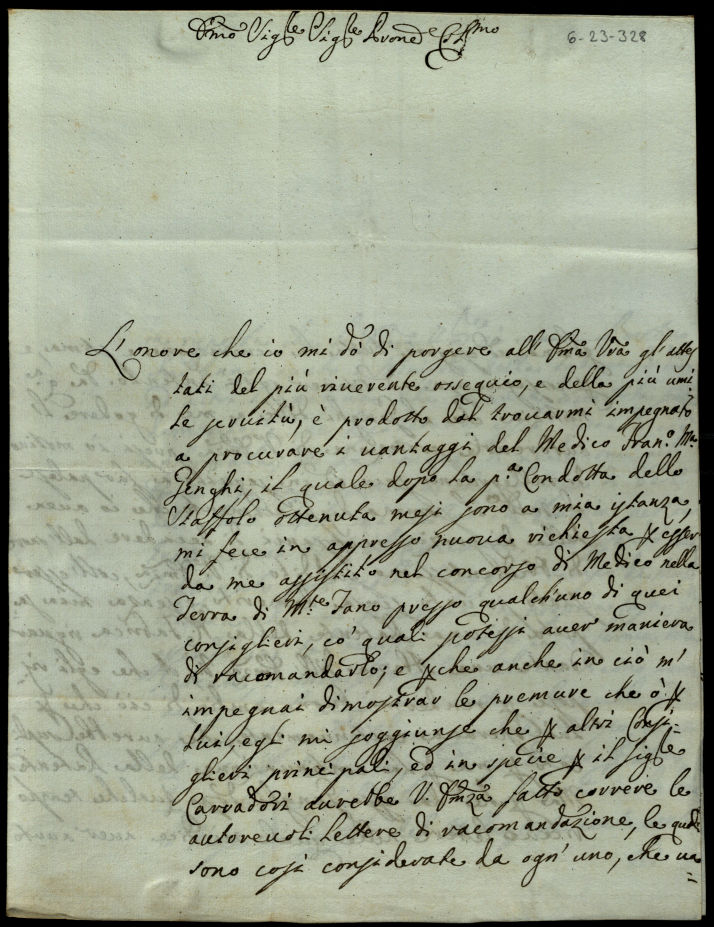 Emo Sig.re Sig.re Prone Col.mo
6-23-328
L'onore che io mi dò di porgere all' Emza Vra gl'attes
tati del più riverente ossequio, e della più umi
le servitù, è prodotto dal trovarmi impegnato
a procurare i vantaggi del Medico Fran.o M.a
Genghi, il quale dopo la p.a Condotta dello
Staffolo ottenuta mesi sono a mia istanza,
mi fece in appresso nuova richiesta p esser
da me assistito nel concorso di Medico nella
Terra di M.te Fano presso qualch'uno di quei
consiglieri, co' quali potessi aver maniera
di racomandarlo; e pche anche in ciò m'
impegnai dimostrar le premure che ò p
lui, egli mi soggiunse che p altri Consi-
glieri principali, ed in specie p il Sig.re
Carradori avrebbe V. Emza fatto correre le
autorevoli lettere di racomandazione, le quali
sono così considerate da ogn' uno, che va
=